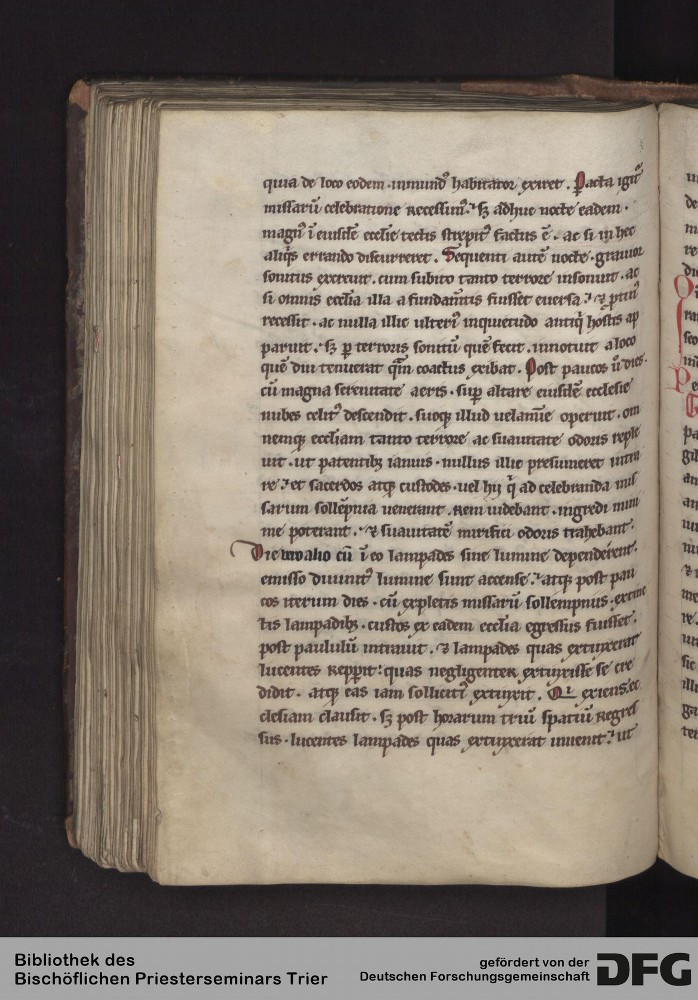 quia de loco eodem . inmund᾽ habitator exiret . Pacta igit᷑
missarū celebratione recessim᷒ . sꝫ adhuc nocte eadem .
magn᷒ ī eiusdē ecclie tectis strepit᷒ factus ē . ac si in hec
aliq̇s errando discurreret . Sequenti autē nocte . gravior
sonitus excreuit . cum subito tanto terrore insonuit . ac
si omnis ecclia illa a fundam̄tis fuisset euersa . ⁊ ptin᷒
recessit . ac nulla illic ulteri᷒ inquietudo antiq̇ hostis ap
paruit . sꝫ ꝑ terroris sonitū quē fecit . innotuit a loco
quē diu tenuerat q̄m coactus exibat . Post paucos ū dies .
cū magna serenitate aeris . suꝑ altare eiusdē ecclesie
nubes celit᷒ descendit . suoqꝫ illud uelamīe operuit . om
nemqꝫ eccliam tanto terrore ac suauitate odoris reple
uit . ut patentibꝫ ianuis . nullus illic presumeret intra
re . et sacerdos atqꝫ custodes . uel hij q̇ ad celebranda mis
sarum sollēpnia uenerant . rem uidebant . ingredi mini
me poterant . ⁊ suauitatē mirifici odoris trahebant .
Die uero alio cū ī eo lampades sine lumine dependerent .
emisso diuinit᷒ lumine sunt accense . atqꝫ post pau
cos iterum dies . cū expletis missarū sollempniis . extinc
tis lampadibꝫ . custos ex eadem ecclia egressus fuisset .
post paululū intrauit . ⁊ lampades quas extinxerat
lucentes repꝑit . quas negligenter extinxisse se cre
didit . atqꝫ eas iam sollicit᷒ extinxit . Qi exiens . ec
clesiam clausit . sꝫ post horarum triū spatiū regres
sus . lucentes lampades quas extinxerat inuenit . ut
Bibliothek des
Bischöflichen Priesterseminars Trier
gefördert von der
Deutschen Forschungsgemeinschaft
DFG